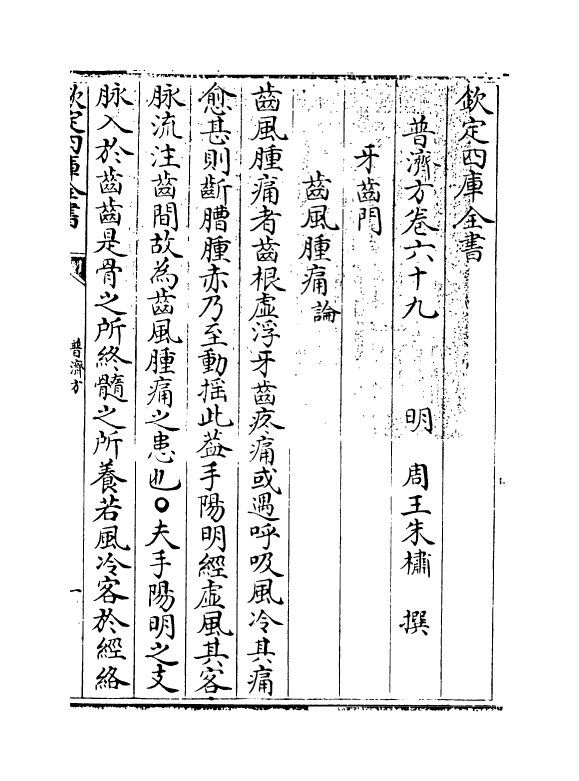 欽定四庫全書
普濟方卷六十九 明 周王朱橚 撰
牙齒門
齒風腫痛論
齒風腫痛者齒根虛浮牙齒疼痛或遇呼吸風冷其痛
愈甚則齗䐬腫赤乃至動揺此葢手陽明經虛風其客
脉流注齒間故為齒風腫痛之患也○夫手陽明之支
脉入於齒齒是骨之所終髓之所養若風冷客於經絡
欽定四庫全書
普濟方
一